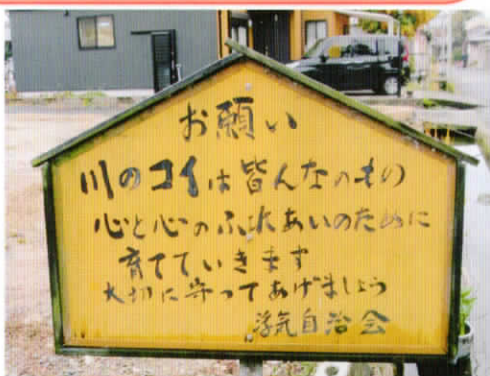 お願い
川のコイは皆んなのもの
心と心のふれあいのために
育てていきます
大切に守ってあげましょう
浮気自治会